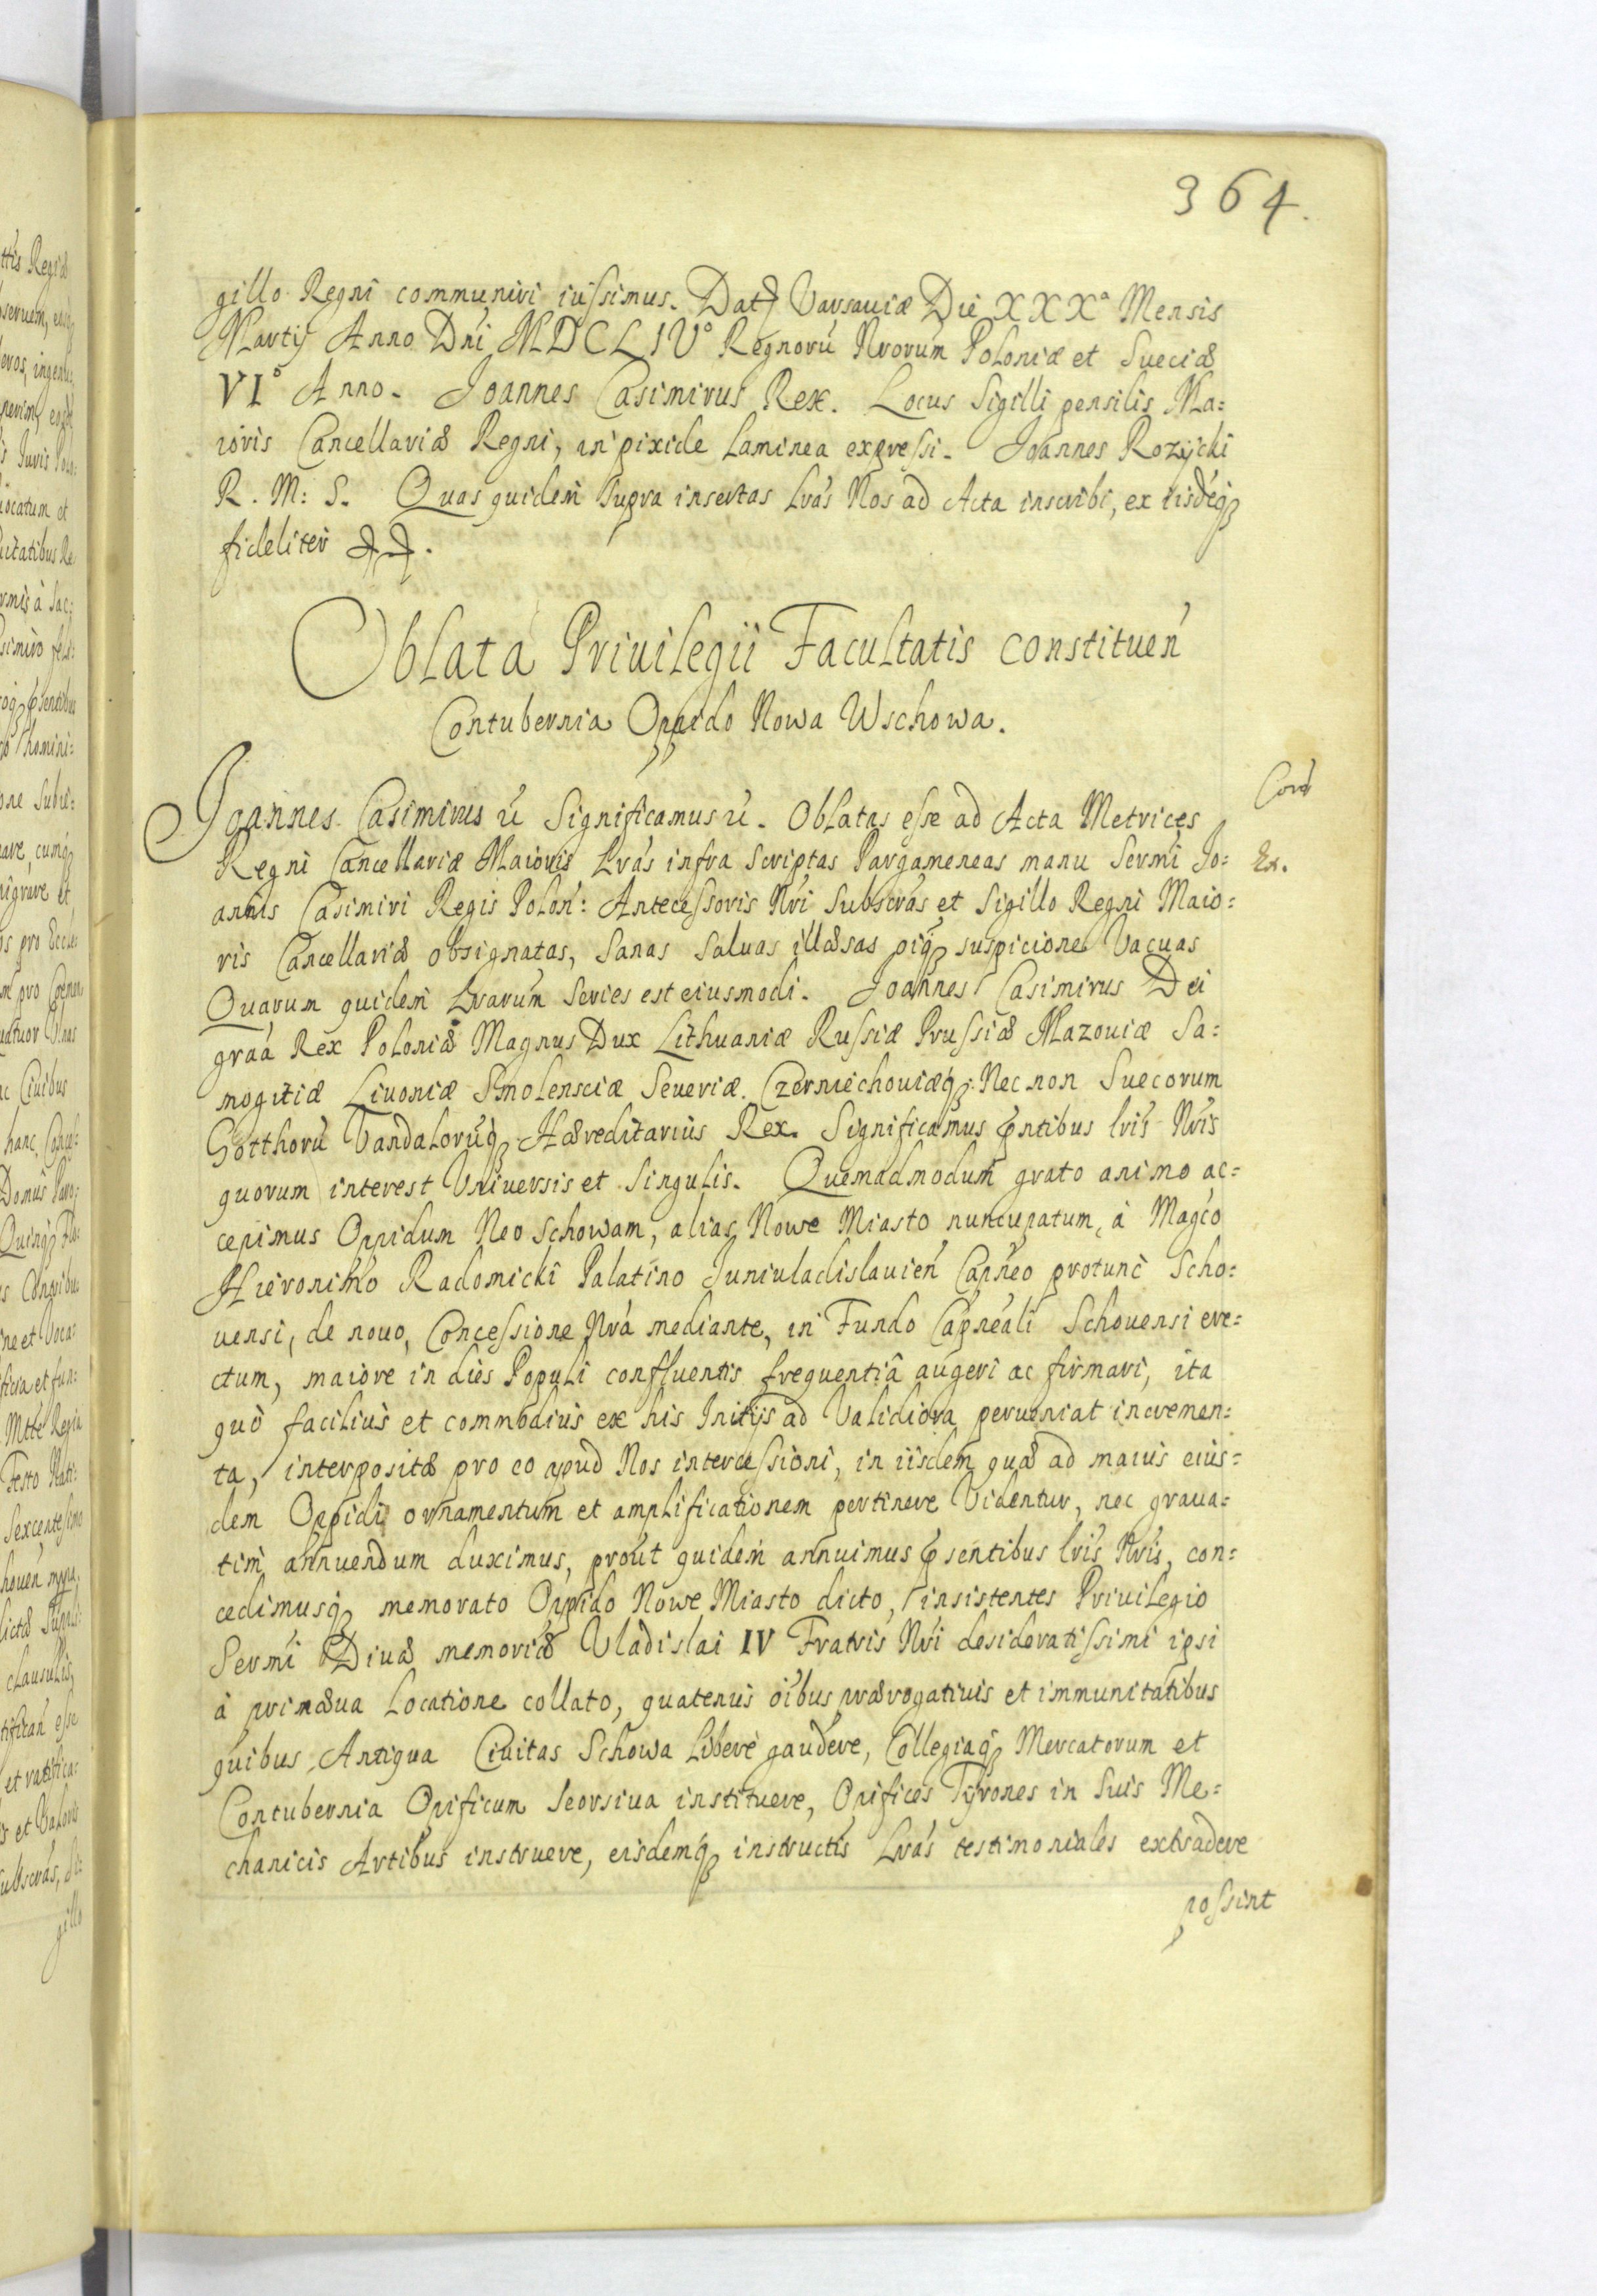 364.
gillo Regni communiri iussimus. Dat Varsauiæ Die XXXa Mensis
Martij Anno Dni MDCLIVo Regnorũ Nrorum Poloniæ et Sueciæ
VIo Anno. Joannes Casimirus Rex. Locus Sigilli pensilis Ma:
ioris Cancellariæ Regni, in pixide laminea expressi. Joannes Rozycki
R. M: S. Quas quidem supra insertas Lrás Nos ad Acta inscribi, ex iisdéq
fideliter
Oblata Priuilegii Facultatis constituen
Contubernia Oppido Nowa Wschowa.
Joannes Casimirus Significamus. Oblatas esse ad Acta Metrices
Cord
Regni Cancellariæ Maioris Lrás infra scriptas Pargameneas manu Sermi Jo:
Ex.
annis Casimiri Regis Polon: Antecessoris Nri Subscrás et Sigillo Regni Maio:
ris Cancellariæ obsignatas, sanas saluas illæsas oiq suspicione Vacuas
Quarum quidem Lrarum series est eiusmodi. Joannes Casimirus Dei
graá Rex Poloniæ Magnus Dux Lithuaniæ Russiæ Prussiæ Mazouiæ Sa:
mogitiæ Liuoniæ Smolensciæ Seueriæ Czerniechouiæq Nec non Suecorum
Gotthorũ Vandalorũq Hæreditarius Rex. Significamus pntibus lris Nris
quorum interest Vniuersis et Singulis. Quemadmodum grato animo ac=
cepimus Oppidum Neo Schowam, alias Nowe Miasto nuncupatum, à Magco
Hieronimo Radomicki Palatino Juniuladislauien Capneo protunc Scho:
uensi, de nouo, Concessione Nrá mediante, in Fundo Capneali Schouensi ere=
ctum, maiore in dies Populi confluentis frequentiâ augeri ac firmari, ita
quò facilius et commodius ex his Initijs ad Validiora perueniat incremen:
ta, interpositæ pro eo apud Nos intercessioni, in iisdem quæ ad maius eius=
dem Oppidi ornamentum et amplificationem pertinere Videntur, nec graua=
tim annuendum duximus, prout quidem annuimus psentibus lris Nris, con=
cedimusq memorato Oppido Nowe Miasto dicto, insistentes Priuilegio
Sermi Diuæ memoriæ Vladislai IV Fratris Nri desideratissimi ipsi
à primæua Locatione collato, quatenus oibus prærogatiuis et immunitatibus
quibus Antiqua Ciuitas Schowa Liberè gaudere, Collegiaq Mercatorum et
Contubernia Opificum seorsiua instituere, Opifices Tyrones in suis Me=
chanicis Artibus instruere, eisdemq instructis Lrás testimoniales extradere
possint